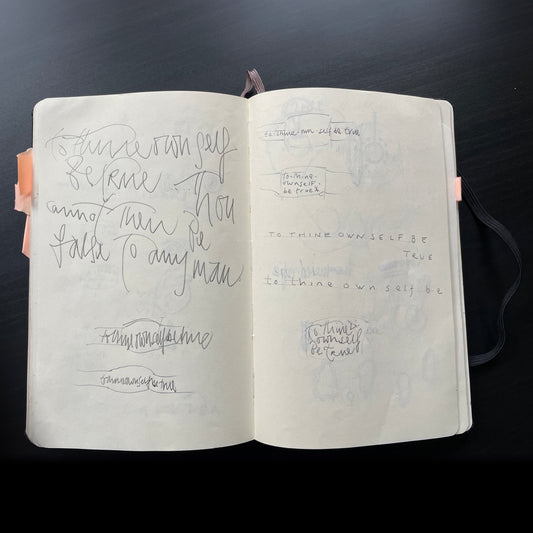 to thine own self
be True Thou
cannot Then be
false To any man
to thine own self be true
to thine own self be true
to · thine · own · self be true
To · thine ·
ownself ·
be true
TO THINE OWN SELF BE
TRUE
to thine own self be
To thine
ownself
be True